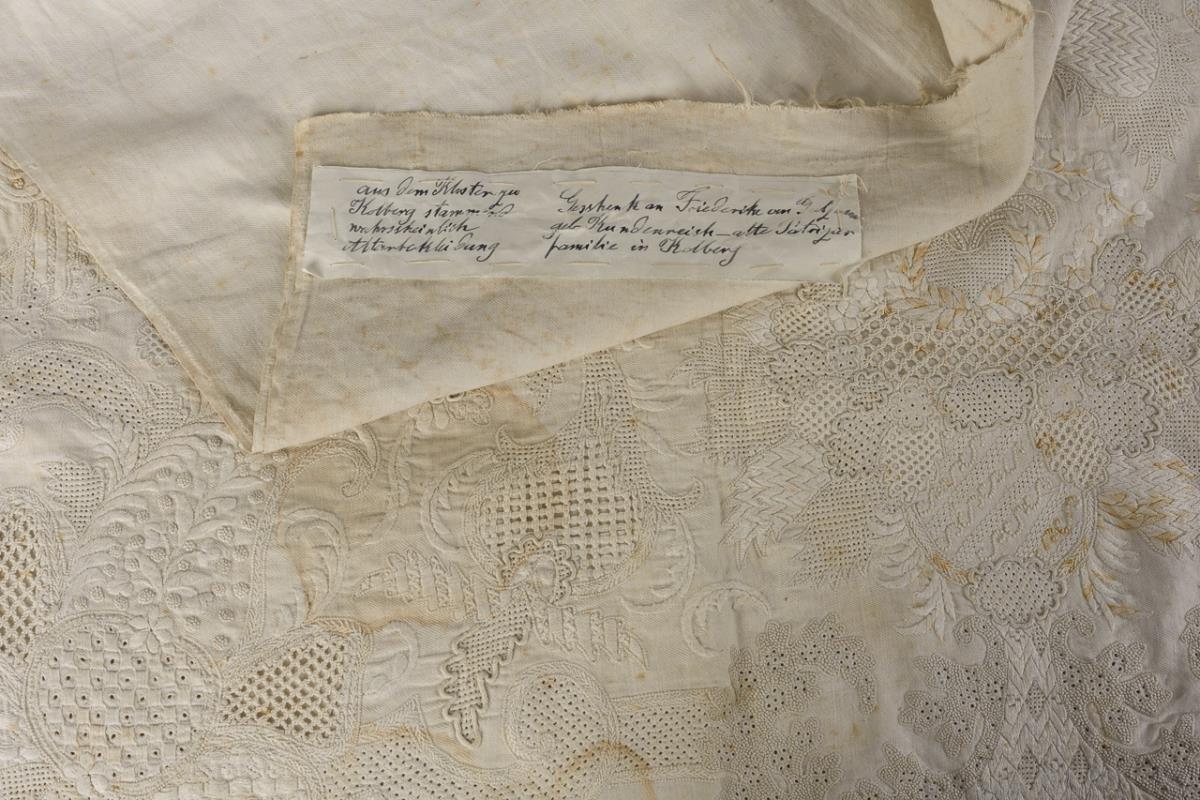 aus dem Kloster zu
Kolberg stammend
wahrscheinlich
Altarbekleidung
Geschenk an Friederike von
geb Kundenreich - alte
familie in Kolberg